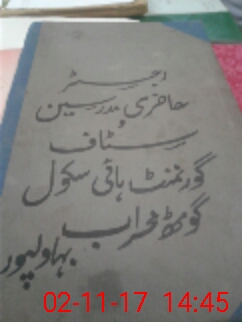 رجسٹر
حاضری مدرسین
و
سٹاف
گورنمنٹ ہائی سکول
گوٹھ محراب
بہاولپور
02-11-17 14:45